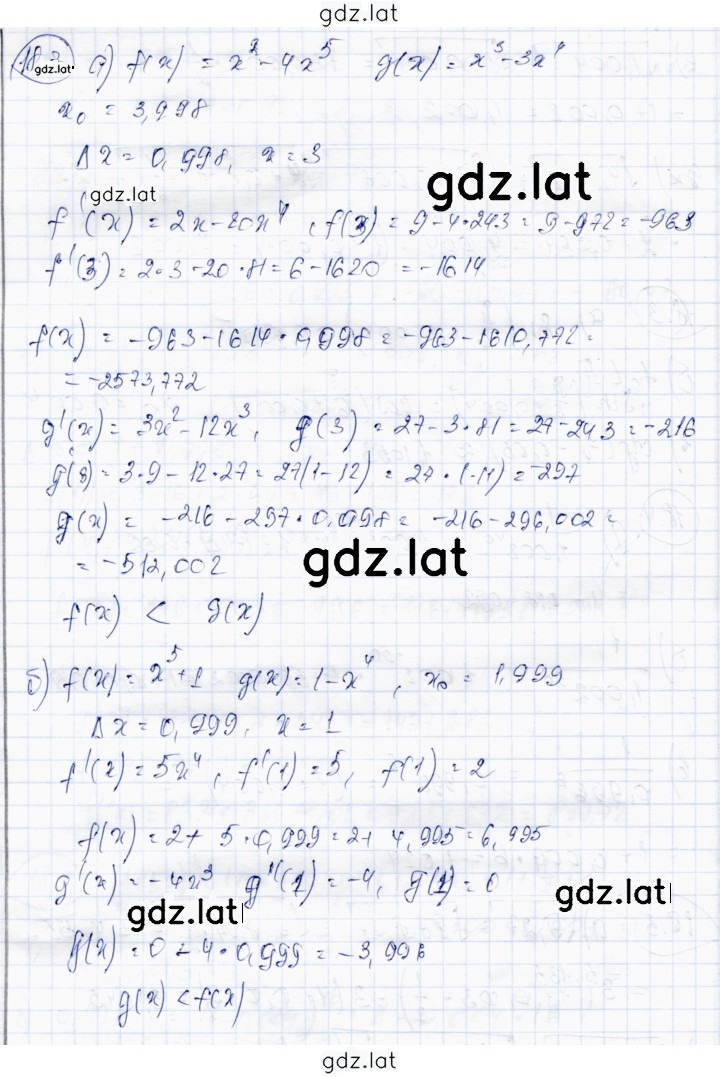 gdz.lat
gdz.lat а) f(x) = x² - 4x⁵ g(x) = x³ - 3x⁴
x₀ = 3,998
Δx = 0,998, x = 3
gdz.lat gdz.lat
f'(x) = 2x - 20x⁴, f(3) = 9 - 4·243 = 9 - 972 = -963
f'(3) = 2·3 - 20·81 = 6 - 1620 = -1614
f(x) = -963 - 1614·0,998 = -963 - 1610,772 =
= -2573,772
g'(x) = 3x² - 12x³, g(3) = 27 - 3·81 = 27 - 243 = -216
g'(3) = 3·9 - 12·27 = 27(1 - 12) = 27·(-11) = -297
g(x) = -216 - 297·0,998 = -216 - 296,002 =
= -512,002 gdz.lat
f(x) < g(x)
б) f(x) = x⁵ + 1 g(x) = 1 - x⁴, x₀ = 1,999
Δx = 0,999, x = 1
f'(x) = 5x⁴, f'(1) = 5, f(1) = 2
f(x) = 2 + 5·0,999 = 2 + 4,995 = 6,995
g'(x) = -4x³ g'(1) = -4, g(1) = 0
gdz.lat gdz.lat
g(x) = 0 - 4·0,999 = -3,996
g(x) < f(x)
gdz.lat